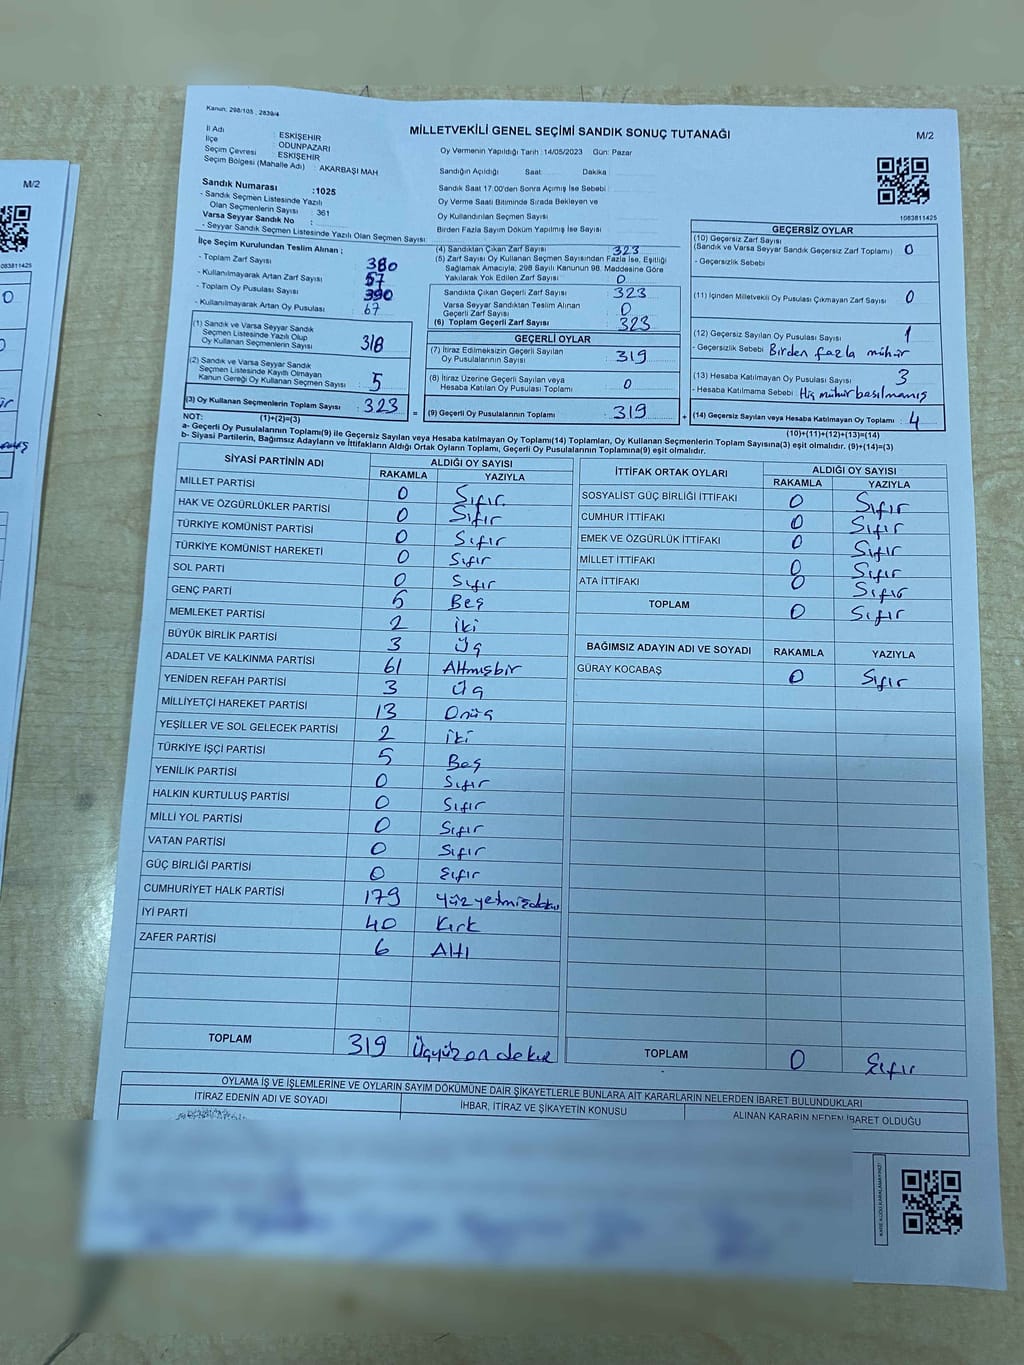 Kanun: 298/105 , 2839/4
MİLLETVEKİLİ GENEL SEÇİMİ SANDIK SONUÇ TUTANAĞI
M/2
İl Adı : ESKİŞEHİR
İlçe : ODUNPAZARI
Seçim Çevresi : ESKİŞEHİR
Seçim Bölgesi (Mahalle Adı) : AKARBAŞI MAH
Sandık Numarası :1025
- Sandık Seçmen Listesinde Yazılı
Olan Seçmenlerin Sayısı : 361
Varsa Seyyar Sandık No :
- Seyyar Sandık Seçmen Listesinde Yazılı Olan Seçmen Sayısı:
Oy Vermenin Yapıldığı Tarih :14/05/2023 Gün: Pazar
Sandığın Açıldığı Saat: Dakika:
Sandık Saat 17.00'den Sonra Açımış İse Sebebi :
Oy Verme Saati Bitiminde Sırada Bekleyen ve
Oy Kullandırılan Seçmen Sayısı :
Birden Fazla Sayım Döküm Yapılmış İse Sayısı :
1083811425
İlçe Seçim Kurulundan Teslim Alınan ;
- Toplam Zarf Sayısı : 380
- Kullanılmayarak Artan Zarf Sayısı : 57
- Toplam Oy Pusulası Sayısı : 390
- Kullanılmayarak Artan Oy Pusulası : 67
(1) Sandık ve Varsa Seyyar Sandık
Seçmen Listesinde Yazılı Olup
Oy Kullanan Seçmenlerin Sayısı : 318
(2) Sandık ve Varsa Seyyar Sandık
Seçmen Listesinde Kayıtlı Olmayan
Kanun Gereği Oy Kullanan Seçmen Sayısı : 5
(3) Oy Kullanan Seçmenlerin Toplam Sayısı : 323
(1)+(2)=(3)
(4) Sandıktan Çıkan Zarf Sayısı : 323
(5) Zarf Sayısı Oy Kullanan Seçmen Sayısından Fazla İse, Eşitliği
Sağlamak Amacıyla; 298 Sayılı Kanunun 98. Maddesine Göre
Yakılarak Yok Edilen Zarf Sayısı : 0
Sandıkta Çıkan Geçerli Zarf Sayısı : 323
Varsa Seyyar Sandıktan Teslim Alınan
Geçerli Zarf Sayısı : 0
(6) Toplam Geçerli Zarf Sayısı : 323
GEÇERLİ OYLAR
(7) İtiraz Edilmeksizin Geçerli Sayılan
Oy Pusulalarının Sayısı : 319
(8) İtiraz Üzerine Geçerli Sayılan veya
Hesaba Katılan Oy Pusulası Toplamı : 0
= (9) Geçerli Oy Pusulalarının Toplamı : 319
GEÇERSİZ OYLAR
(10) Geçersiz Zarf Sayısı
(Sandık ve Varsa Seyyar Sandık Geçersiz Zarf Toplamı) : 0
- Geçersizlik Sebebi :
(11) İçinden Milletvekili Oy Pusulası Çıkmayan Zarf Sayısı : 0
(12) Geçersiz Sayılan Oy Pusulası Sayısı : 1
- Geçersizlik Sebebi : Birden fazla mühür
(13) Hesaba Katılmayan Oy Pusulası Sayısı : 3
- Hesaba Katılmama Sebebi : Hiç mühür basılmamış
+ (14) Geçersiz Sayılan veya Hesaba Katılmayan Oy Toplamı : 4
(10)+(11)+(12)+(13)=(14)
NOT:
a- Geçerli Oy Pusulalarının Toplamı(9) ile Geçersiz Sayılan veya Hesaba katılmayan Oy Toplamı(14) Toplamları, Oy Kullanan Seçmenlerin Toplam Sayısına(3) eşit olmalıdır. (9)+(14)=(3)
b- Siyasi Partilerin, Bağımsız Adayların ve İttifakların Aldığı Ortak Oyların Toplamı, Geçerli Oy Pusulalarının Toplamına(9) eşit olmalıdır.
SİYASİ PARTİNİN ADI ALDIĞI OY SAYISI
RAKAMLA YAZIYLA
MİLLET PARTİSİ 0 Sıfır
HAK VE ÖZGÜRLÜKLER PARTİSİ 0 Sıfır
TÜRKİYE KOMÜNİST PARTİSİ 0 Sıfır
TÜRKİYE KOMÜNİST HAREKETİ 0 Sıfır
SOL PARTİ 0 Sıfır
GENÇ PARTİ 5 Beş
MEMLEKET PARTİSİ 2 iki
BÜYÜK BİRLİK PARTİSİ 3 Üç
ADALET VE KALKINMA PARTİSİ 61 Altmışbir
YENİDEN REFAH PARTİSİ 3 Üç
MİLLİYETÇİ HAREKET PARTİSİ 13 Onüç
YEŞİLLER VE SOL GELECEK PARTİSİ 2 iki
TÜRKİYE İŞÇİ PARTİSİ 5 Beş
YENİLİK PARTİSİ 0 Sıfır
HALKIN KURTULUŞ PARTİSİ 0 Sıfır
MİLLİ YOL PARTİSİ 0 Sıfır
VATAN PARTİSİ 0 Sıfır
GÜÇ BİRLİĞİ PARTİSİ 0 Sıfır
CUMHURİYET HALK PARTİSİ 179 Yüzyetmişdokuz
İYİ PARTİ 40 Kırk
ZAFER PARTİSİ 6 Altı
TOPLAM 319 Üçyüzondokuz
İTTİFAK ORTAK OYLARI ALDIĞI OY SAYISI
RAKAMLA YAZIYLA
SOSYALİST GÜÇ BİRLİĞİ İTTİFAKI 0 Sıfır
CUMHUR İTTİFAKI 0 Sıfır
EMEK VE ÖZGÜRLÜK İTTİFAKI 0 Sıfır
MİLLET İTTİFAKI 0 Sıfır
ATA İTTİFAKI 0 Sıfır
TOPLAM 0 Sıfır
BAĞIMSIZ ADAYIN ADI VE SOYADI RAKAMLA YAZIYLA
GÜRAY KOCABAŞ 0 Sıfır
TOPLAM 0 Sıfır
OYLAMA İŞ VE İŞLEMLERİNE VE OYLARIN SAYIM DÖKÜMÜNE DAİR ŞİKAYETLERLE BUNLARA AİT KARARLARIN NELERDEN İBARET BULUNDUKLARI
İTİRAZ EDENİN ADI VE SOYADI İHBAR, İTİRAZ VE ŞİKAYETİN KONUSU ALINAN KARARIN NEDEN İBARET OLDUĞU
M/2